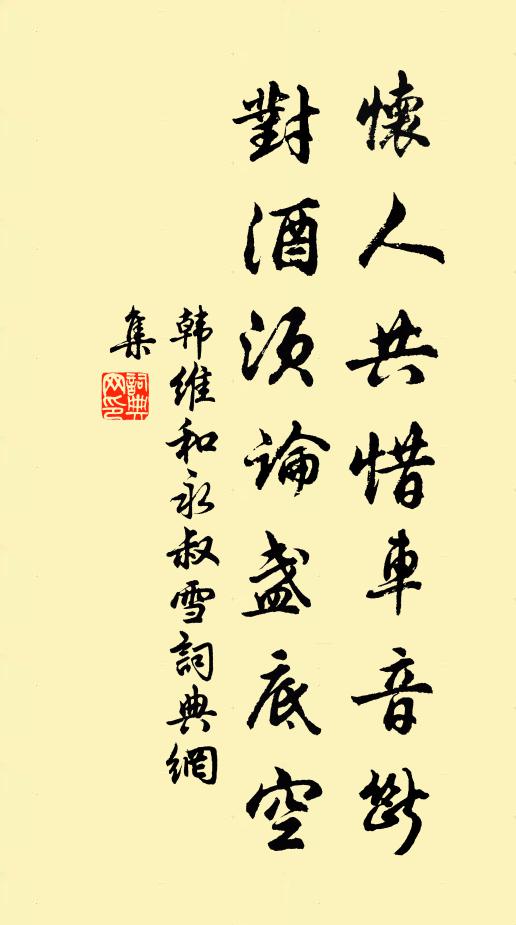 懷人共惜車音斷
對酒須論盞底空
韩維和永叔雪詞典網
集
詞典
网印